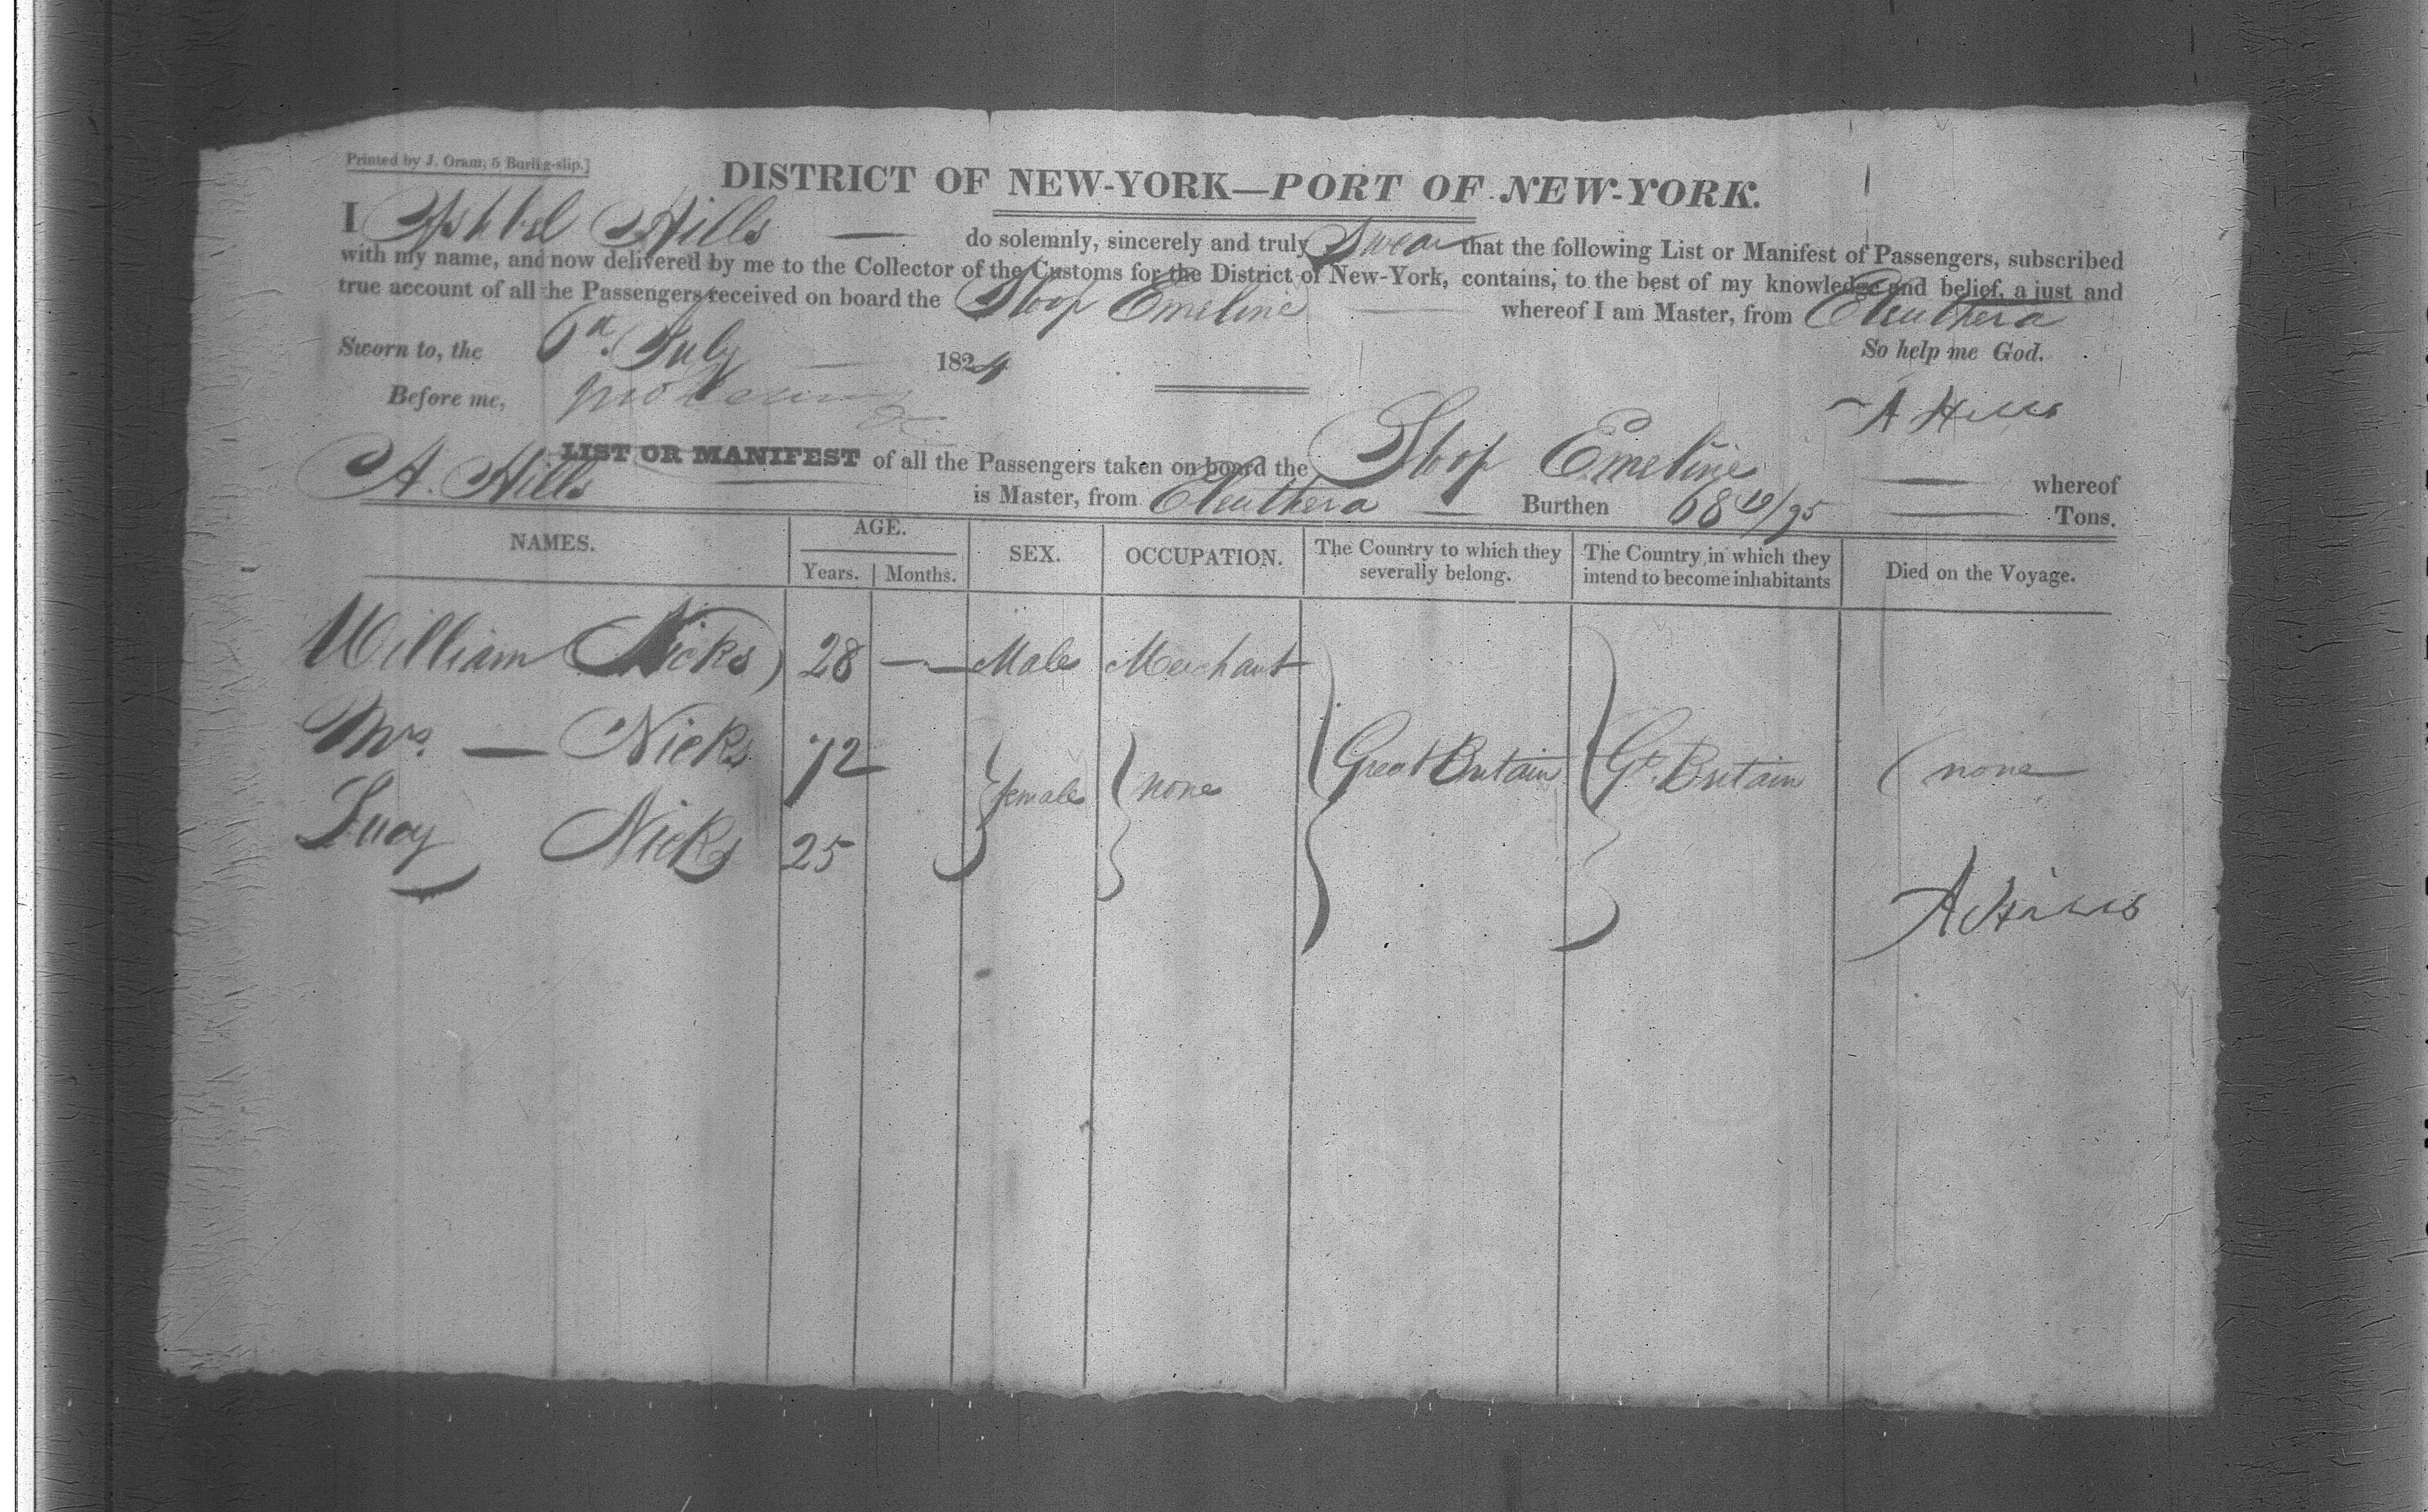 Printed by J. Oram, 5 Burling-slip.]
DISTRICT OF NEW-YORK—PORT OF NEW-YORK.
I Ashbel Hills — do solemnly, sincerely and truly Swear that the following List or Manifest of Passengers, subscribed
with my name, and now delivered by me to the Collector of the Customs for the District of New-York, contains, to the best of my knowledge and belief, a just and
true account of all the Passengers received on board the Sloop Emeline — whereof I am Master, from Eleuthera
Sworn to, the 6th. July — 1824 So help me God.
Before me, A Hills
LIST OR MANIFEST of all the Passengers taken on board the Sloop Emeline — whereof
A. Hills is Master, from Eleuthera — Burthen 68 10/95 — Tons.
NAMES. AGE. SEX. OCCUPATION. The Country to which they severally belong. The Country in which they intend to become inhabitants Died on the Voyage.
Years. Months.
William Nicks 28 — Male Merchant
Mrs. — Nicks 72 female none Great Britain Gt. Britain none
Lucy Nicks 25
A Hills